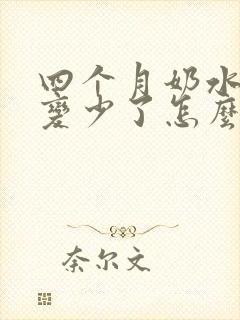 四个月奶水
變少了怎麼
奈尔文